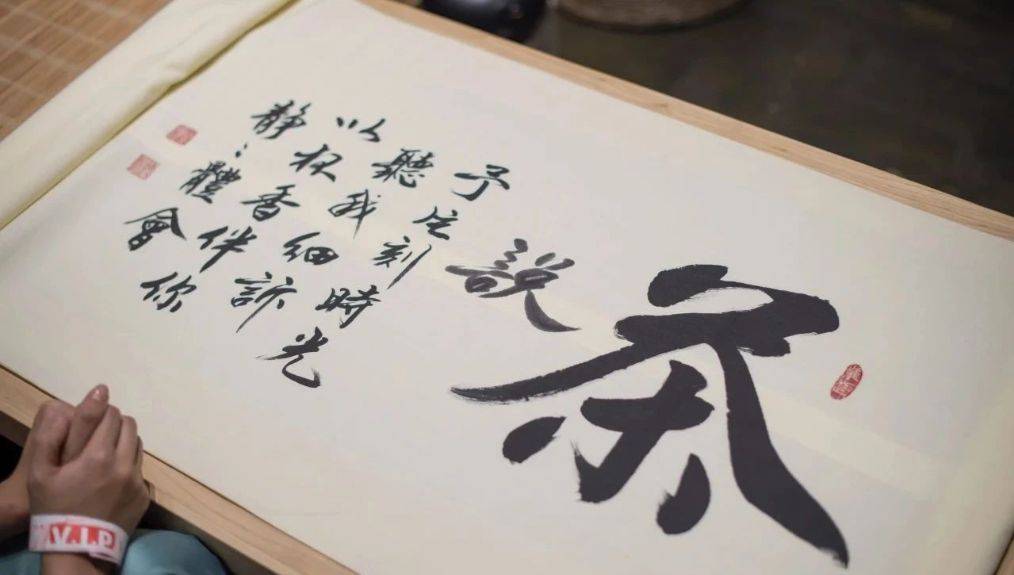 茶
說
予片刻時光
聽我細訴
以香伴你
靜々體會
V.I.P